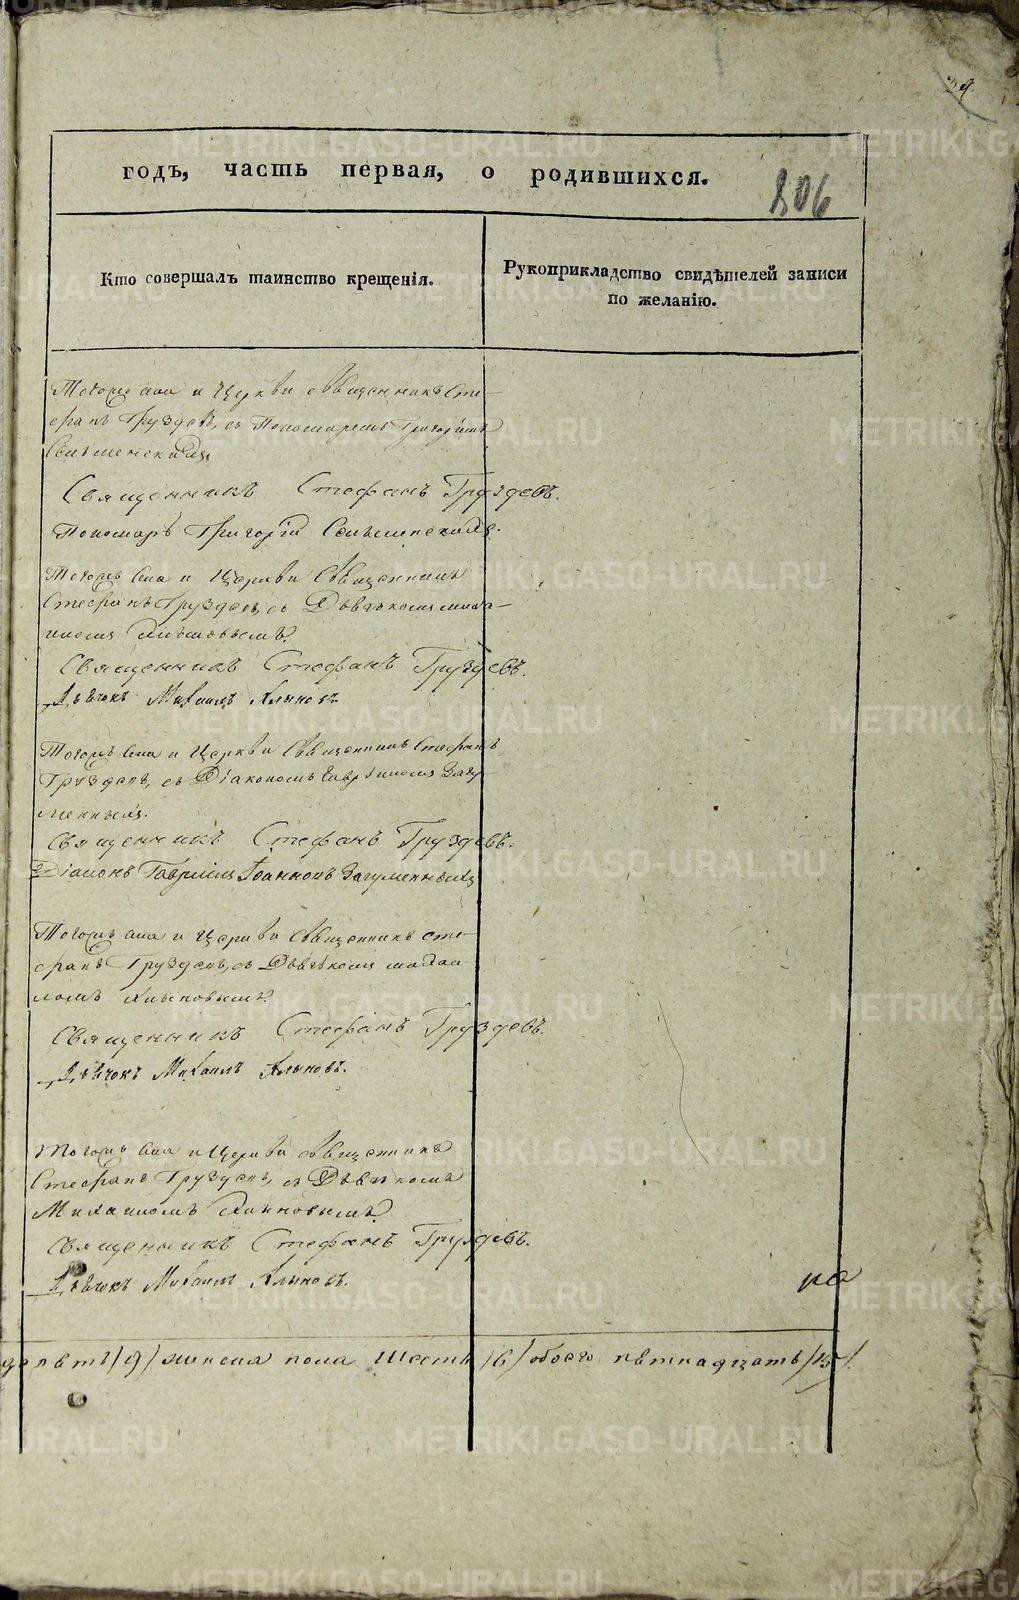 39.
годъ, часть первая, о родившихся.
806
Кто совершалъ таинство крещенія.
Рукоприкладство свидѣтелей записи
по желанію.
Тогожъ села и Церкви священникъ Сте-
фанъ Груздевъ, съ Пономаремъ Григоріемъ
Священникъ Стефанъ Груздевъ.
Пономарь Григорій
Тогожъ села и Церкви Священникъ
Стефанъ Груздевъ, съ Дьячкомъ Миха-
иломъ Клыковымъ.
Священникъ Стефанъ Груздевъ.
Дьячокъ Михаилъ Клыковъ.
Тогожъ села и Церкви Священникъ Стефанъ
Груздевъ, съ Діакономъ Гавріиломъ Загу-
менныхъ.
Священникъ Стефанъ Груздевъ.
Діаконъ Гавріилъ Іоанновъ Загуменныхъ
Тогожъ села и Церкви Священникъ Сте-
фанъ Груздевъ, съ Дьячкомъ Михаи-
ломъ Клыковымъ.
Священникъ Стефанъ Груздевъ.
Дьячокъ Михаилъ Клыковъ.
Тогожъ села и Церкви священникъ
Стефанъ Груздевъ, съ Дьячкомъ
Михаиломъ Клыковымъ.
Священникъ Стефанъ Груздевъ.
Дьячокъ Михаилъ Клыковъ.
на
девять /9/ женска пола шесть /6/ обоего пятнадцать /15/.
METRIKI.GASO-URAL.RU